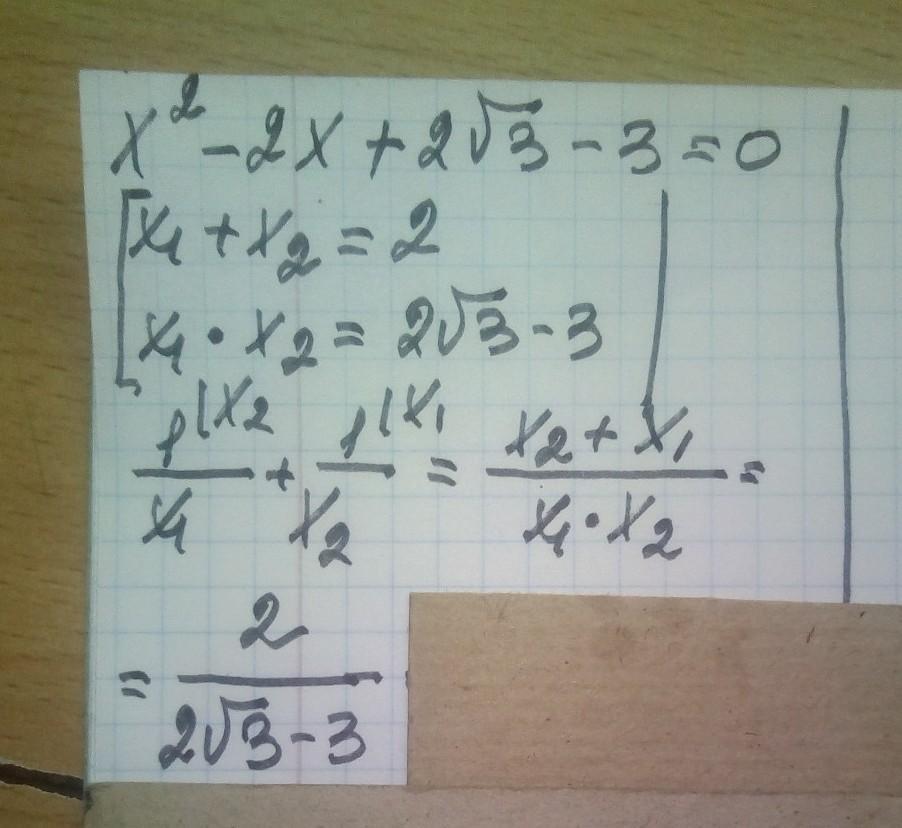 x² - 2x + 2√3 - 3 = 0
[x₁ + x₂ = 2
x₁ · x₂ = 2√3 - 3
1|x₂ / x₁ + 1|x₁ / x₂ = x₂ + x₁ / x₁ · x₂ =
= 2 / 2√3 - 3